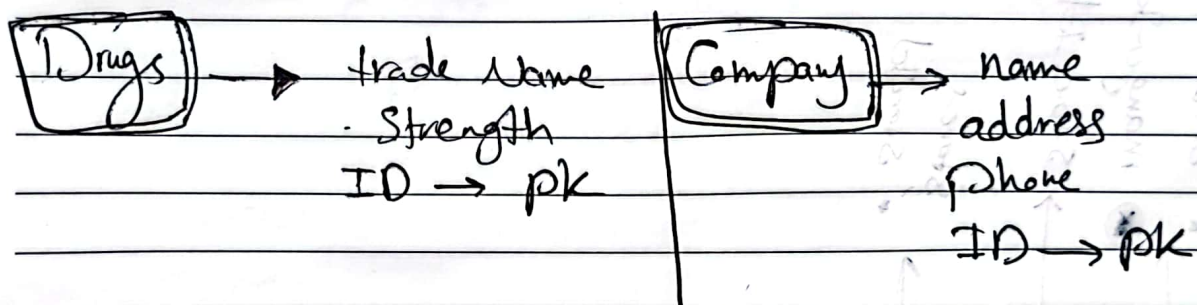 Drugs → trade Name
Strength
ID → pk
Company → name
address
phone
ID → pk